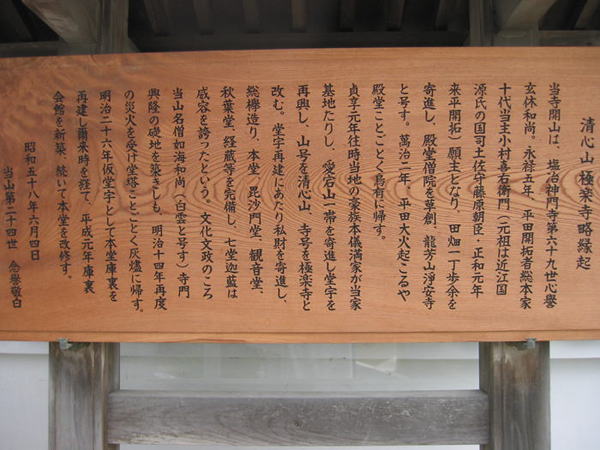 清心山極楽寺略縁起
当寺開山は、塩冶神門寺第六十九世心誉
玄休和尚。永禄五年、平田開拓者総本家
十代当主小村喜右衛門(元祖は近江国
源氏の国司土佐守藤原朝臣・正和元年
来平開拓)願主となり、田畑一丁歩余を
寄進し、殿堂僧院を草創、龍芳山淨安寺
と号す。萬治二年、平田大火起こるや
殿堂ことごとく烏有に帰す。
貞享元年往時当地の豪族本儀満家が当家
基地たりし、愛宕山一帯を寄進し堂宇を
再興し、山号を清心山、寺号を極楽寺と
改む。堂宇再建にあたり私財を寄進し、
総欅造り、本堂、毘沙門堂、観音堂、
秋葉堂、経蔵等を完備し、七堂迦藍は
威容を誇ったという。文化文政のころ
当山名僧如海和尚(白雲と号す)寺門
興隆の礎地を築きしも、明治十四年再度
の災火を受け堂塔ことごとく灰燼に帰す。
明治二十六年仮堂宇として本堂庫裏を
再建し爾来時を経て、平成元年庫裏
会館を新築、続いて本堂を改修す。
昭和五十八年六月四日
当山第二十四世 念誉敬白